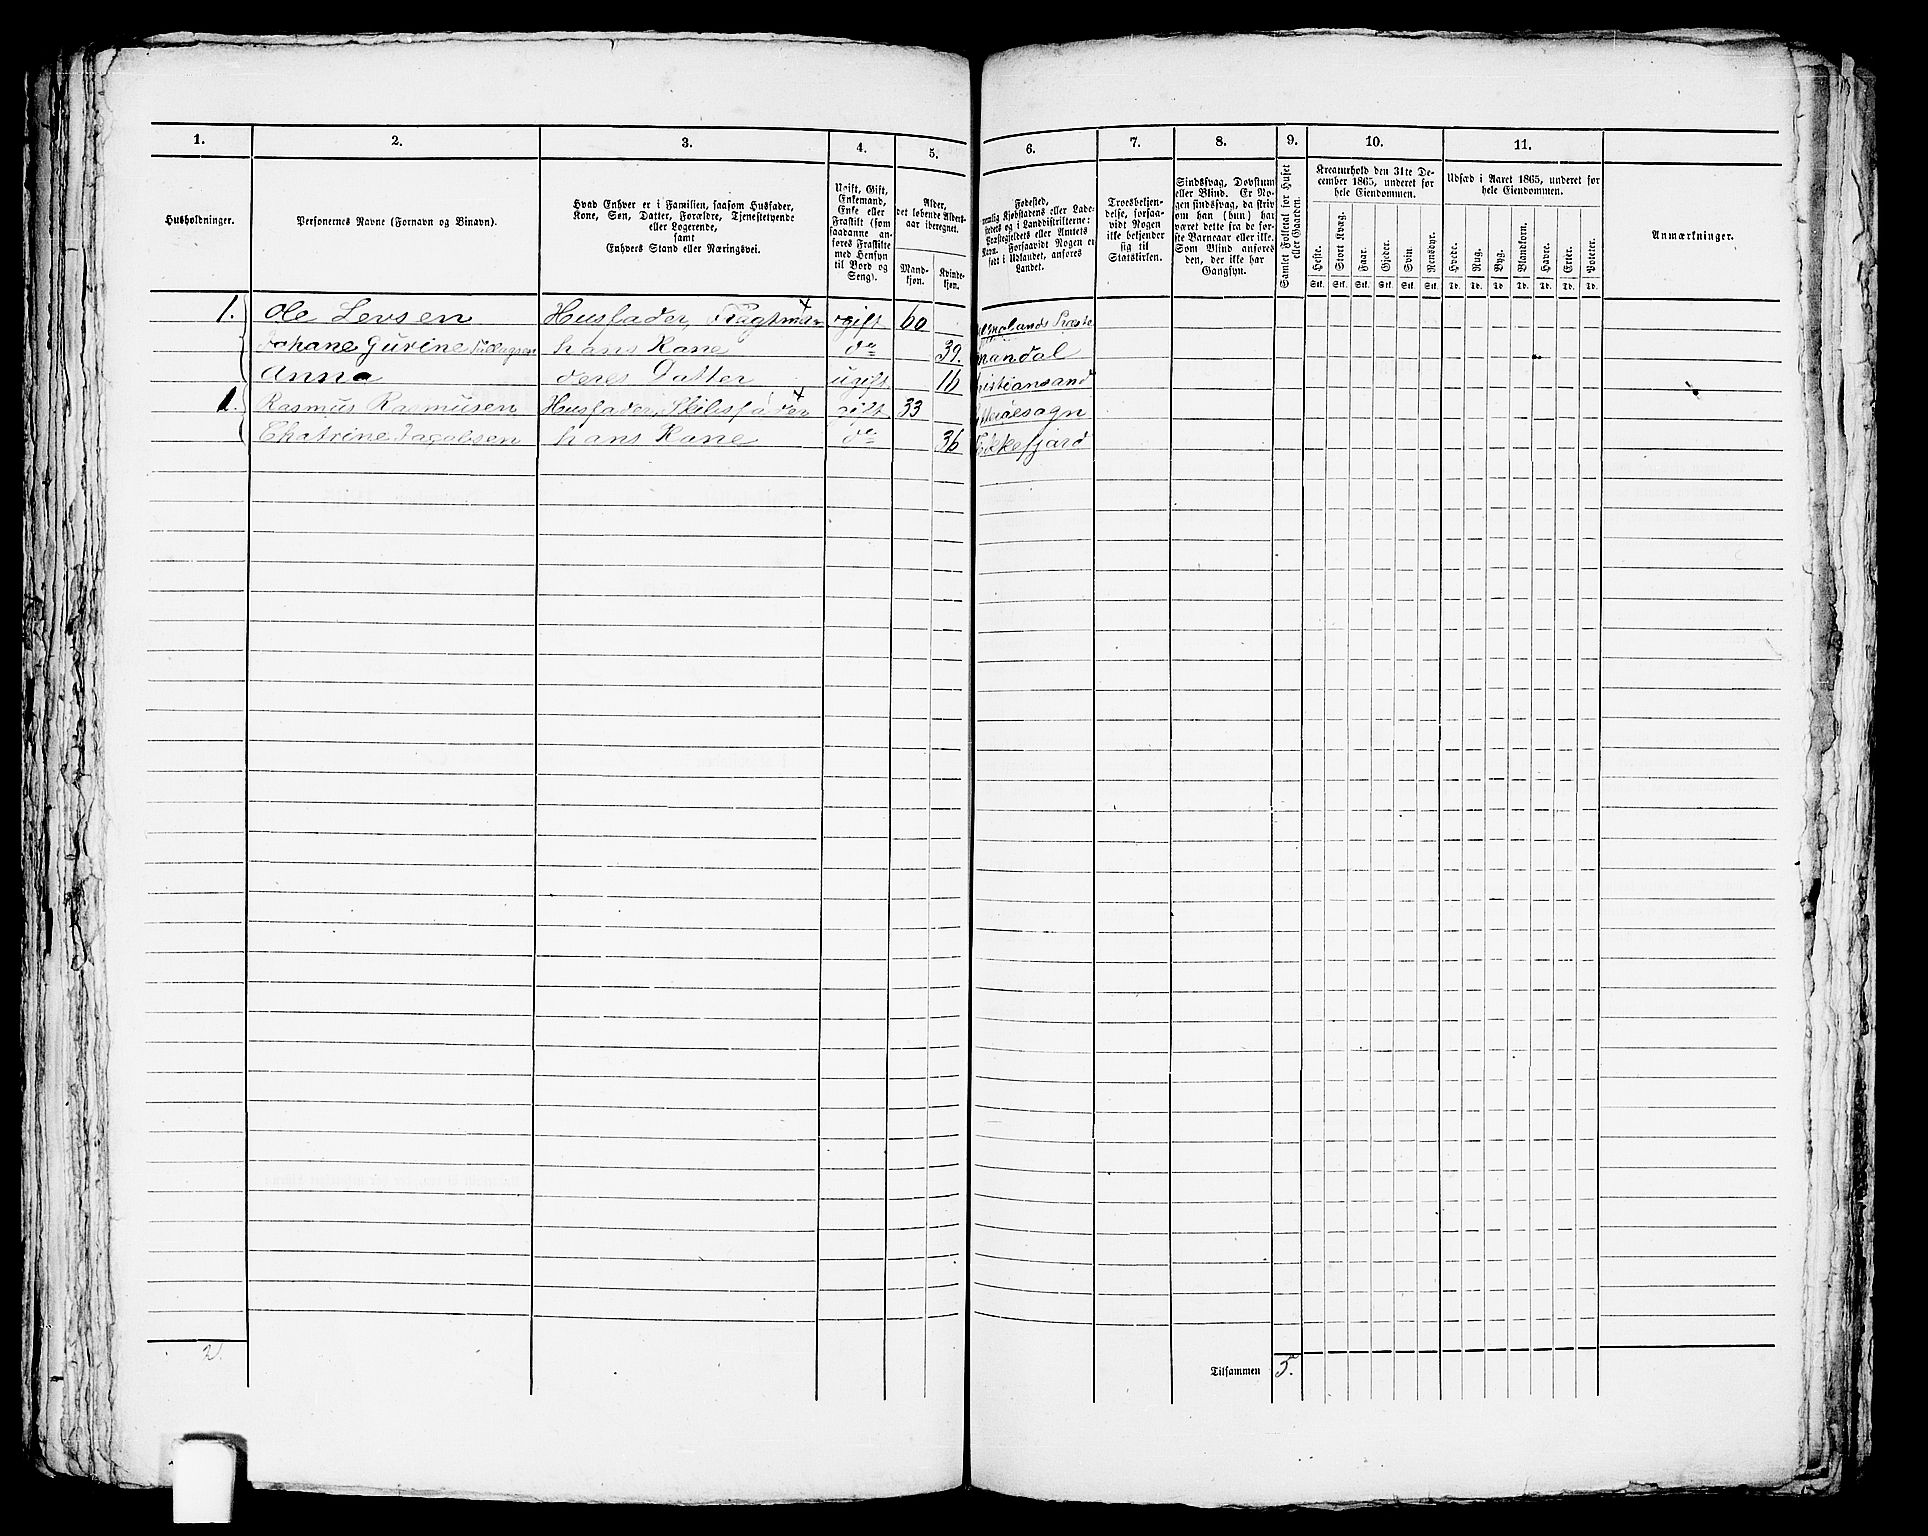 1. 2. 3. 4. 5. 6. 7. 8. 9. 10. 11.
Husholdninger.
Personernes Navne (Fornavn og Binavn).
Hvad Enhver er i Familien, saasom Husfader,
Kone, Søn, Datter, Forældre, Tjenestetyende
eller Logerende,
samt
Enhvers Stand eller Næringsvei.
Ugift, Gift,
Enkemand,
Enke eller
Fraskilt (som
saadanne an-
føres Fraskilte
med Hensyn
til Bord og
Seng).
Alder,
det løbende Alders-
aar iberegnet.
Mand-
kjøn.
Kvinde-
kjøn.
Fødested,
nemlig Kjøbstadens eller Lade-
stedets og i Landdistrikterne:
Præstegjeldets eller Amtets
Navn. Forsaavidt Nogen er
født i Udlandet, anføres
Landet.
Troesbekjen-
delse, forsaa-
vidt Nogen
ikke bekjender
sig til
Statskirken.
Sindssvag, Døvstum
eller Blind. Er No-
gen sindssvag, da skriv
om han (hun) har
været dette fra de før-
ste Barneaar eller ikke.
Som Blind anføres
den, der ikke har
Gangsyn.
Samlet Folketal for Huset
eller Gaarden.
Kreaturhold den 31te De-
cember 1865, underet for
hele Eiendommen.
Heste. Stort Kvæg. Faar. Gjeder. Svin. Rensdyr.
Stk. Stk. Stk. Stk. Stk. Stk.
Udsæd i Aaret 1865, underet for
hele Eiendommen.
Hvede. Rug. Byg. Blandkorn. Havre. Erter. Poteter.
Td. Td. Td. Td. Td. Td. Td.
Anmærkninger.
1. Ole Levsen Husfader, gift 60
Johane Gurine hans Kone do 39. Mandal
Anna deres Datter ugift 16 Christiansand
1. Rasmus Rasmusen Husfader, gift 33
Chatrine Jacobsen hans Kone do 36 Flekkefjord
2.
Tilsammen 5.